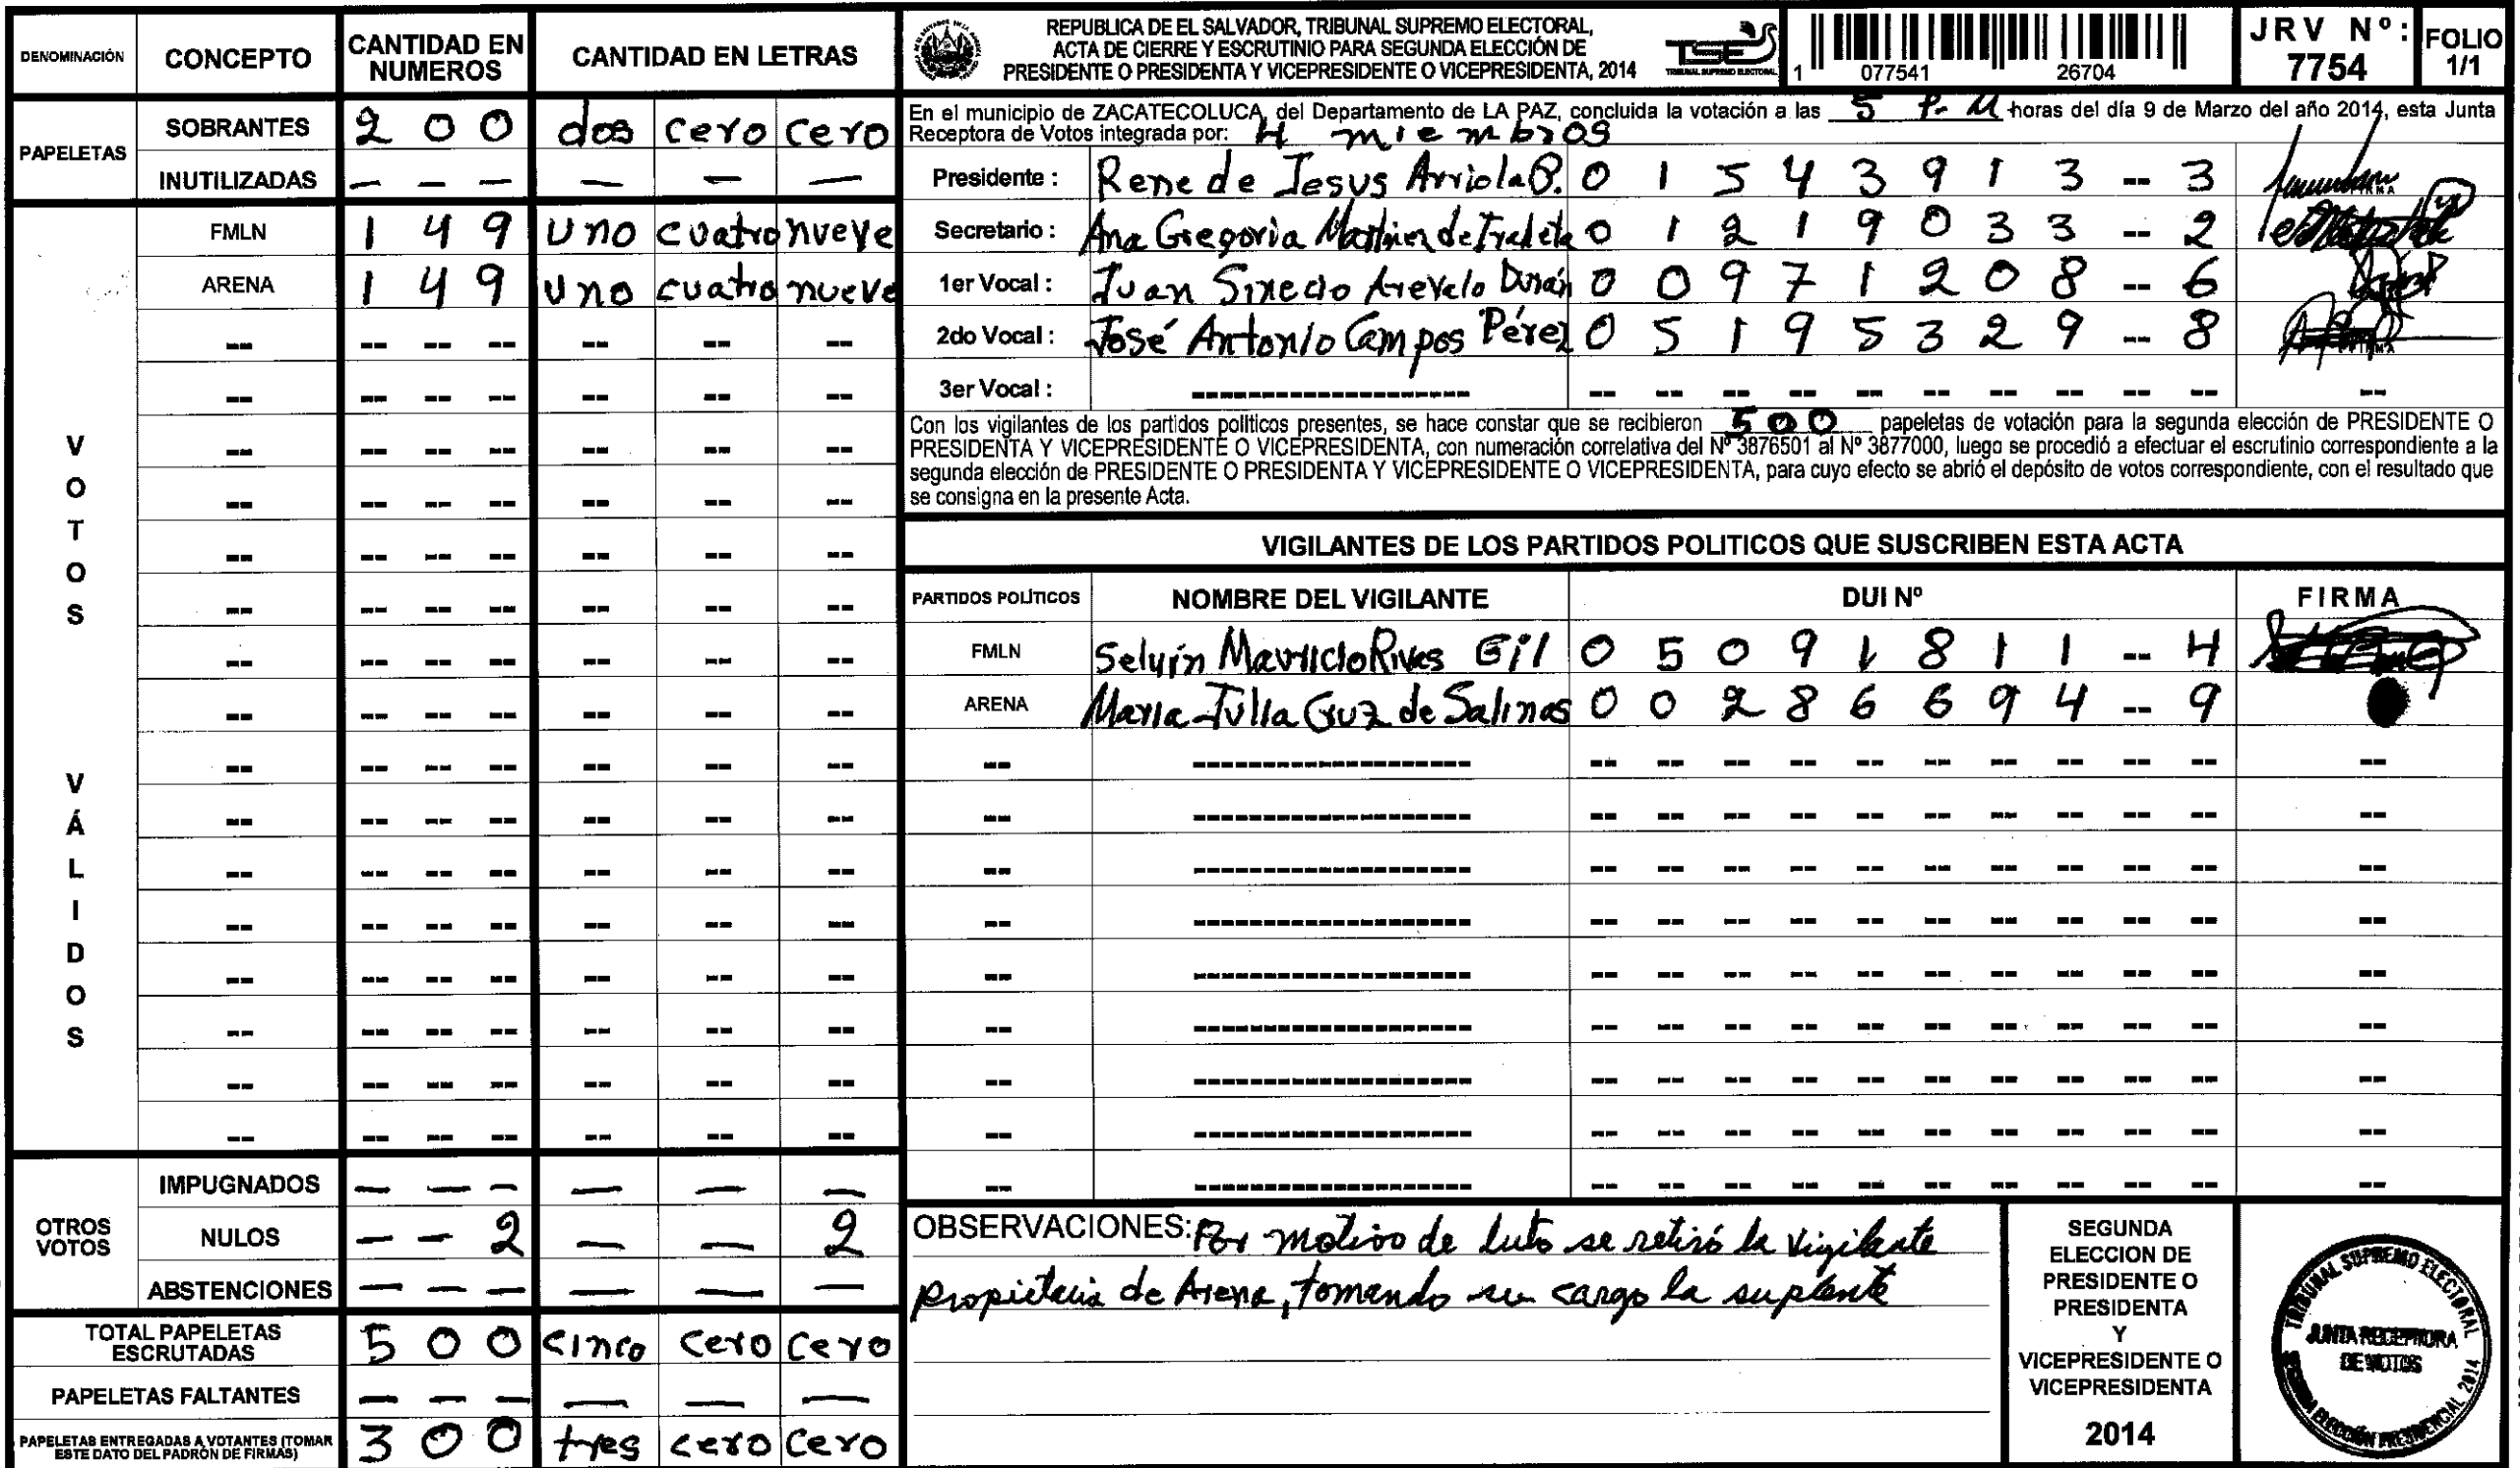 DENOMINACIÓN CONCEPTO CANTIDAD EN NUMEROS CANTIDAD EN LETRAS
PAPELETAS
SOBRANTES 2 0 0 dos cero cero
INUTILIZADAS — — — — — —
VOTOS VÁLIDOS
FMLN 1 4 9 uno cuatro nueve
ARENA 1 4 9 uno cuatro nueve
OTROS VOTOS
IMPUGNADOS — — — — — —
NULOS — — 2 — — 2
ABSTENCIONES — — — — — —
TOTAL PAPELETAS ESCRUTADAS 5 0 0 cinco cero cero
PAPELETAS FALTANTES — — — — — —
PAPELETAS ENTREGADAS A VOTANTES (TOMAR ESTE DATO DEL PADRÓN DE FIRMAS) 3 0 0 tres cero cero
REPUBLICA DE EL SALVADOR, TRIBUNAL SUPREMO ELECTORAL,
ACTA DE CIERRE Y ESCRUTINIO PARA SEGUNDA ELECCIÓN DE
PRESIDENTE O PRESIDENTA Y VICEPRESIDENTE O VICEPRESIDENTA, 2014
TSE
TRIBUNAL SUPREMO ELECTORAL
1 077541 26704
JRV Nº: 7754
FOLIO 1/1
En el municipio de ZACATECOLUCA, del Departamento de LA PAZ, concluida la votación a las 5 P.M horas del día 9 de Marzo del año 2014, esta Junta
Receptora de Votos integrada por: 4 miembros
Presidente : Rene de Jesus Arriola P. 0 1 5 4 3 9 1 3 -- 3
Secretario : Ana Gregoria 0 1 2 1 9 0 3 3 -- 2
1er Vocal : Juan Sinecio Arevalo Durán 0 0 9 7 1 2 0 8 -- 6
2do Vocal : José Antonio Campos Pérez 0 5 1 9 5 3 2 9 -- 8
3er Vocal :
Con los vigilantes de los partidos políticos presentes, se hace constar que se recibieron 500 papeletas de votación para la segunda elección de PRESIDENTE O
PRESIDENTA Y VICEPRESIDENTE O VICEPRESIDENTA, con numeración correlativa del Nº 3876501 al Nº 3877000, luego se procedió a efectuar el escrutinio correspondiente a la
segunda elección de PRESIDENTE O PRESIDENTA Y VICEPRESIDENTE O VICEPRESIDENTA, para cuyo efecto se abrió el depósito de votos correspondiente, con el resultado que
se consigna en la presente Acta.
VIGILANTES DE LOS PARTIDOS POLITICOS QUE SUSCRIBEN ESTA ACTA
PARTIDOS POLÍTICOS NOMBRE DEL VIGILANTE DUI Nº FIRMA
FMLN Selvin Mauricio Rivas Gil 0 5 0 9 1 8 1 1 -- 4
ARENA Maria Julia Cruz de Salinas 0 0 2 8 6 6 9 4 -- 9
OBSERVACIONES: Por motivo de luto se retiró la vigilante
propietaria de Arena, tomando su cargo la suplente
SEGUNDA
ELECCION DE
PRESIDENTE O
PRESIDENTA
Y
VICEPRESIDENTE O
VICEPRESIDENTA
2014
TRIBUNAL SUPREMO ELECTORAL
JUNTA RECEPTORA
DE VOTOS
SEGUNDA ELECCIÓN PRESIDENCIAL 2014